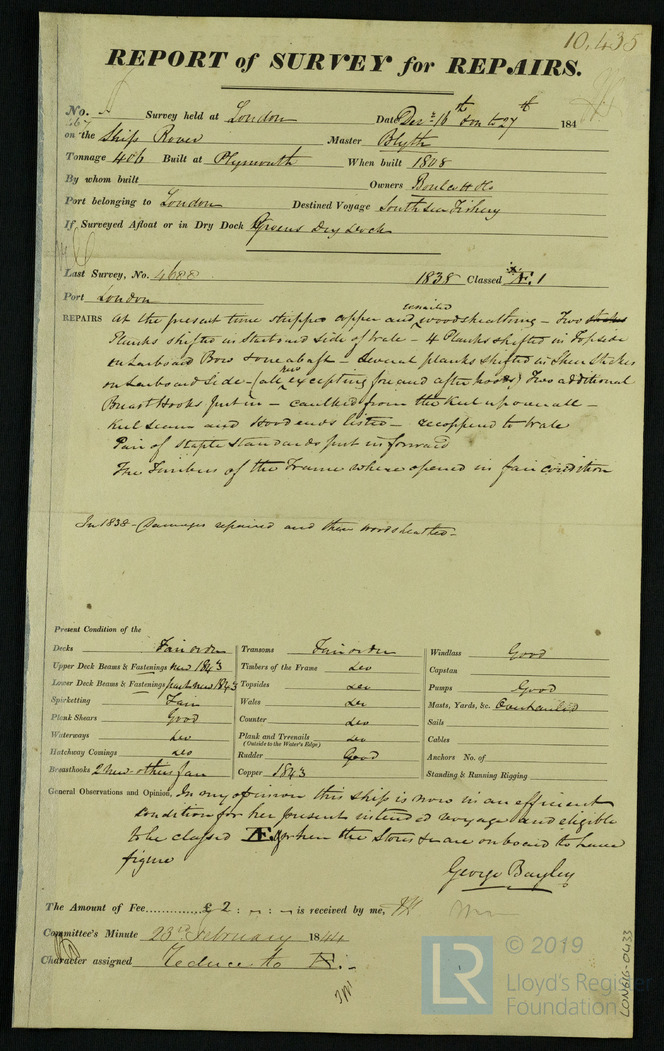 10,435
REPORT of SURVEY for REPAIRS.
No. 467 Survey held at London Date Decr 16th to 27th 184
on the Ship Rover Master Blyth
Tonnage 406 Built at Plymouth When built 1808
By whom built Owners Boulcott & Co
Port belonging to London Destined Voyage South Sea Fishery
If Surveyed Afloat or in Dry Dock Greens Dry Dock
Last Survey, No. 4688 1838 Classed Æ. 1
Port London
REPAIRS At the present time stripped copper and wood sheathing - Two
Planks shifted in Starboard side of Wale - 4 Planks shifted in Topside
on Larboard Bow & one abaft - Several planks shifted in Sheer Strakes
on Larboard side - (all new excepting fore and after hoods) Two additional
Breast Hooks put in - caulked from the Keel up overall -
Keel seams and Hood ends listed - recoppered to Wale
Pair of staple standards put in forward
The Timbers of the Frame where opened in fair condition
In 1838 - Damages repaired and then wood sheathed -
Present Condition of the
Decks Fair order Transoms Fair order Windlass Good
Upper Deck Beams & Fastenings new 1843 Timbers of the Frame Do Capstan
Lower Deck Beams & Fastenings part new 1843 Topsides Do Pumps Good
Spirketting Fair Wales Do Masts, Yards, &c. Overhauled
Plank Shears Good Counter Do Sails
Waterways Do Plank and Treenails Do Cables
(Outside to the Water's Edge)
Hatchway Comings Do Rudder Good Anchors No. of
Breasthooks 2 New others fair Copper 1843 Standing & Running Rigging
General Observations and Opinion, In my opinion this ship is now in an efficient
condition for her present intended voyage and eligible
to be classed Æ when the Stores & are on board to have
figure
George Bayley
The Amount of Fee............£ 2 : - : - is received by me,
Committee's Minute 23rd February 1844
Character assigned Reduce to Æ. -
© 2019
LR
Lloyd's Register
Foundation
LON616-0433